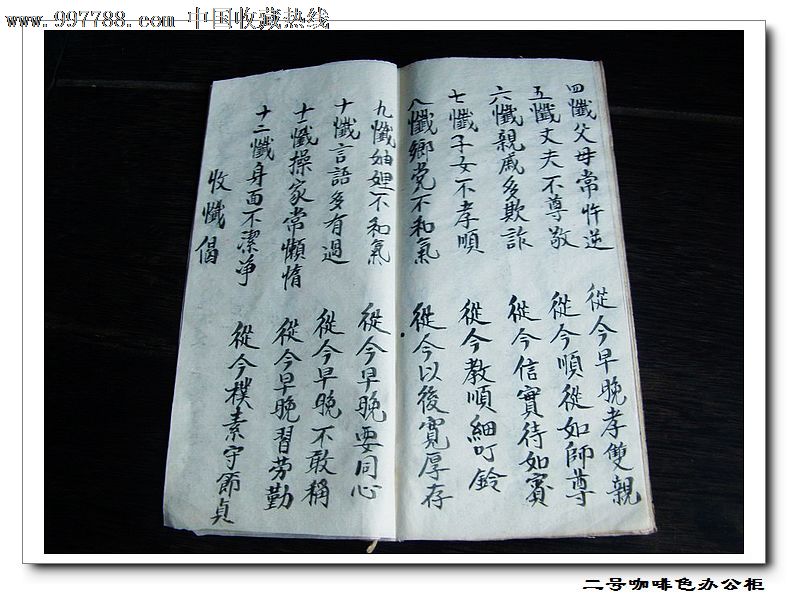 www.997788.com 中国收藏热线
四懺父母常忤逆 從今早晚孝雙親
五懺丈夫不尊敬 從今順從如師尊
六懺親戚多欺詐 從今信實待如賓
七懺子女不孝順 從今教順細叮鈴
八懺鄉党不和氣 從今以後寬厚存
九懺妯娌不和氣 從今早晚要同心
十懺言語多有過 從今早晚不敢稱
十一懺操家常懶惰 從今早晚習劳勤
十二懺身面不潔净 從今樸素守節貞
收懺偈
二号咖啡色办公柜